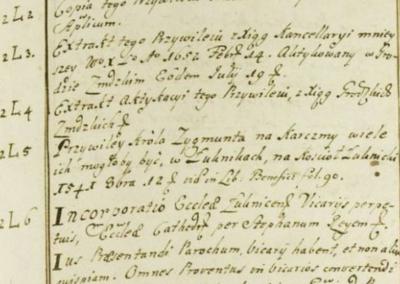 2 L 2 Copia tego
Aplicum.
2 L 3. Extrakt tego Przywileiu z xiąg Kancellaryi mniey
szey W° X° L° A° 1652 Febr 14. Aktykowany w Gro
dzie Zmdzkim Eodem Julij 19
2 L 4 Extrakt Aktykacyi tego Przywileiu, z xiąg Grodzkich
Zmdzkich
2 L 5 Przywiley Króla Zygmunta na Karczmy wiele
ich mogłoby być, w Zuknikach, na Kościoł Zuknicki
1541 8bra 12 vid in Lib. Benefici fol. 90.
2 L 6 Incorporatio Eccleæ Zuknicen Vicariis perpe-
tuis, Eccleæ Cathedr per Stephanum Epcem
Ius Præsentandi Parochum, vicarij habent, et non alius
quispiam. Omnes Proventus in vicarios convertendi